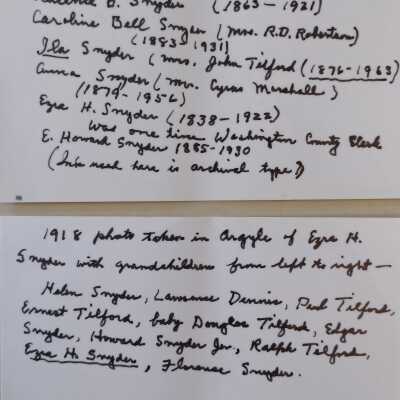 B. Snyder (1863-1921)
Caroline Bell Snyder (Mrs. R.D. Robertson)
(1883-1931)
Ila Snyder (Mrs. John Tilford (1876-1963)
Anna Snyder (Mrs. Cyrus Marshall)
(1879-1956)
Ezra H. Snyder (1838-1922)
was one time Washington County Clerk
E. Howard Snyder 1885-1930
(Ink used here is archival type)
1918 photo taken in Argyle of Ezra H.
Snyder with grandchildren from left to right —
Helen Snyder, Lawrence Dennis, Paul Tilford,
Ernest Tilford, baby Douglas Tilford, Edgar
Snyder, Howard Snyder Jr., Ralph Tilford,
Ezra H. Snyder, Florence Snyder.